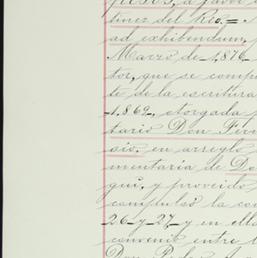 pesos, a favor d
tinez del Rio.=
ad exhibendum,
Marzo de 1,876
tor, que se compu
te de la escritura
1,862, otorgada p
tario Don Ferr
sio. en arreglo
mentaria de Do
gui, y proveido
compulsó la co
26 y 27 y en ella
convenio entre l
Don Pedro